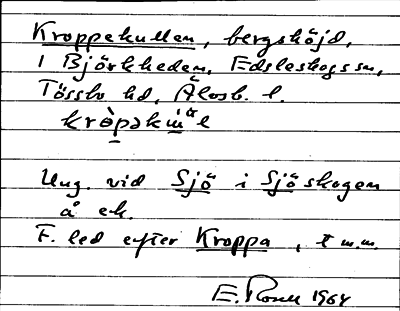 Kroppekullen, bergshöjd,
i Björkheden, Edsleskogs sn,
Tössbo hd, Älvsb. l.
kròpəkuḷ
Ung. vid Sjö i Sjöskogen
å ek.
F. led efter Kroppa, t m.m.
E. Rosell 1964